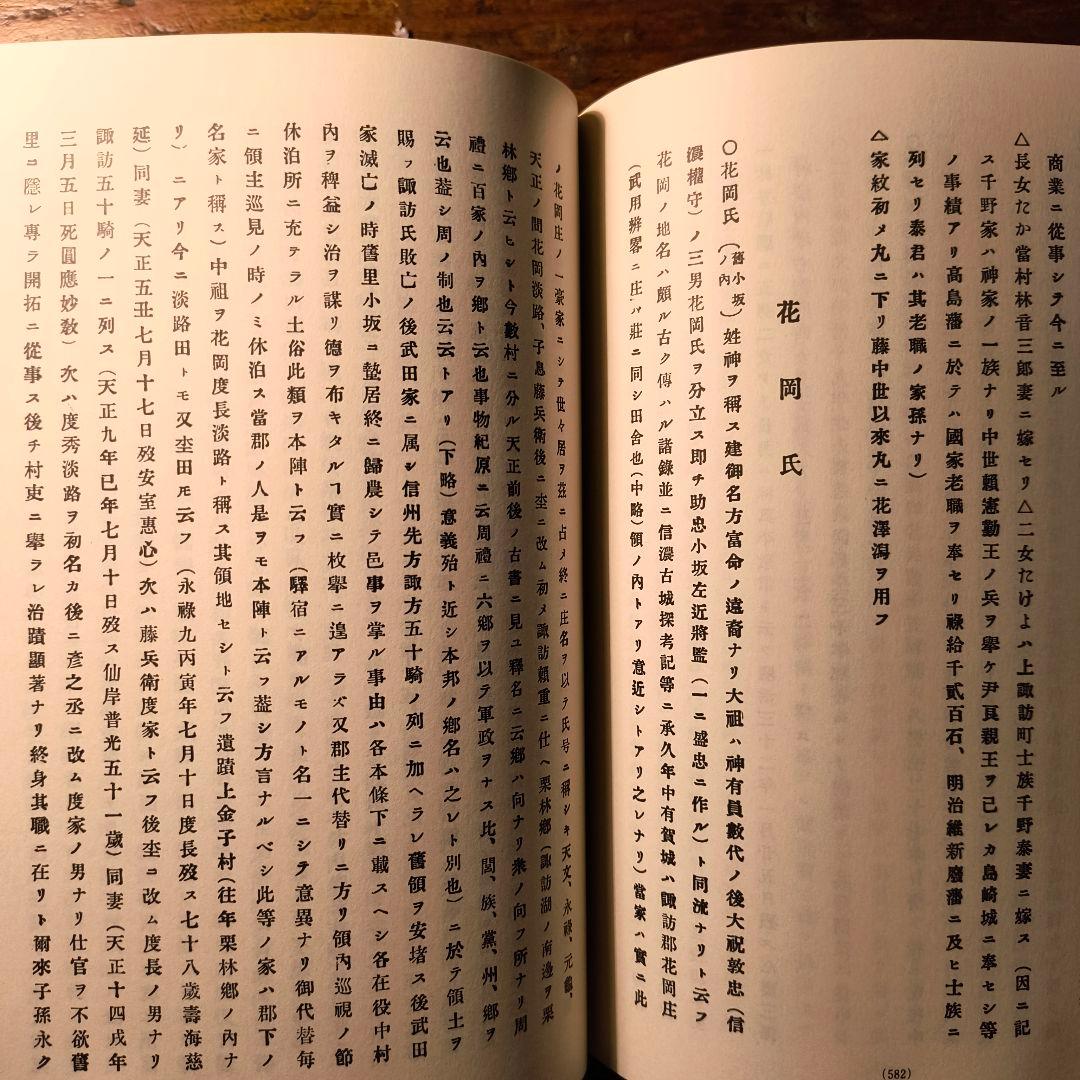 商業ニ從事シテ今ニ至ル
△長女たか當村林音三郎妻ニ嫁セリ△二女たけよハ上諏訪町士族千野泰妻ニ嫁ス（因ニ記
ス千野家ハ神家ノ一族ナリ中世頼憲勤王ノ兵ヲ擧ケ尹良親王ヲ己レカ島崎城ニ奉セシ等
ノ事績アリ高島藩ニ於テハ國家老職ヲ奉セリ祿給千貳百石、明治維新廢藩ニ及ヒ士族ニ
列セリ泰君ハ其老職ノ家孫ナリ）
△家紋初メ丸ニ下リ藤中世以來丸ニ花澤瀉ヲ用フ
花岡氏
〇花岡氏（舊小坂ノ內）姓神ヲ稱ス建御名方富命ノ遠裔ナリ大祖ハ神有員數代ノ後大祝敦忠（信
濃權守）ノ三男花岡氏ヲ分立ス即チ助忠小坂左近將監（一ニ盛忠ニ作ル）ト同流ナリト云フ
花岡ノ地名ハ頗ル古ク傳ハル諸錄並ニ信濃古城探考記等ニ承久年中有賀城ハ諏訪郡花岡庄
（武用辨畧ニ庄ハ莊ニ同シ田舍也（中略）領ノ內トアリ意近シトアリ之レナリ）當家ハ實ニ此
ノ花岡庄ノ一豪家ニシテ世々居ヲ茲ニ占メ終ニ庄名ヲ以テ氏号ニ稱シキ天文、永祿、元龜、
天正ノ間花岡淡路、子息藤兵衛後ニ坔ニ改ム初メ諏訪頼重ニ仕ヘ栗林鄉（諏訪湖ノ南邊ヲ栗
林鄉ト云ヒシト今數村ニ分ル天正前後ノ古書ニ見ユ釋名ニ云鄉ハ向ナリ衆ノ向フ所ナリ周
禮ニ百家ノ內ヲ鄉ト云也事物紀原ニ云周禮ニ六鄉ヲ以テ軍政ヲナス比、閭、族、黨、州、鄉ヲ
云也蓋シ周ノ制也云云トアリ（下略）意義殆ト近シ本邦ノ鄉名ハ之レト別也）ニ於テ領土ヲ
賜フ諏訪氏敗亡ノ後武田家ニ属シ信州先方諏方五十騎ノ列ニ加ヘラレ舊領ヲ安堵ス後武田
家滅亡ノ時舊里小坂ニ蟄居終ニ歸農シテ邑事ヲ掌ル事由ハ各本條下ニ載スヘシ各在役中村
內ヲ稗益シ治ヲ謀リ德ヲ布キタルヿ實ニ枚擧ニ遑アラズ又郡主代替リニ方リ領內巡視ノ節
休泊所ニ充テラル土俗此類ヲ本陣ト云フ（驛宿ニアルモノト名一ニシテ意異ナリ御代替每
ニ領主巡見ノ時ノミ休泊ス當郡ノ人是ヲモ本陣ト云フ蓋シ方言ナルベシ此等ノ家ハ郡下ノ
名家ト稱ス）中祖ヲ花岡度長淡路ト稱ス其領地セシト云フ遺蹟上金子村（往年栗林鄉ノ內ナ
リ）ニアリ今ニ淡路田トモ又坔田モ云フ（永祿九丙寅年七月十日度長歿ス七十八歲壽海慈
延）同妻（天正五丑七月十七日歿安室惠心）次ハ藤兵衛度家ト云フ後坔ニ改ム度長ノ男ナリ
諏訪五十騎ノ一ニ列ス（天正九年巳年七月十日歿ス仙岸普光五十一歲）同妻（天正十四戌年
三月五日死圓應妙敎）次ハ度秀淡路ヲ初名カ後ニ彥之丞ニ改ム度家ノ男ナリ仕官ヲ不欲舊
里ニ隱レ專ラ開拓ニ從事ス後チ村吏ニ擧ラレ治蹟顯著ナリ終身其職ニ在リト爾來子孫永ク
(582)